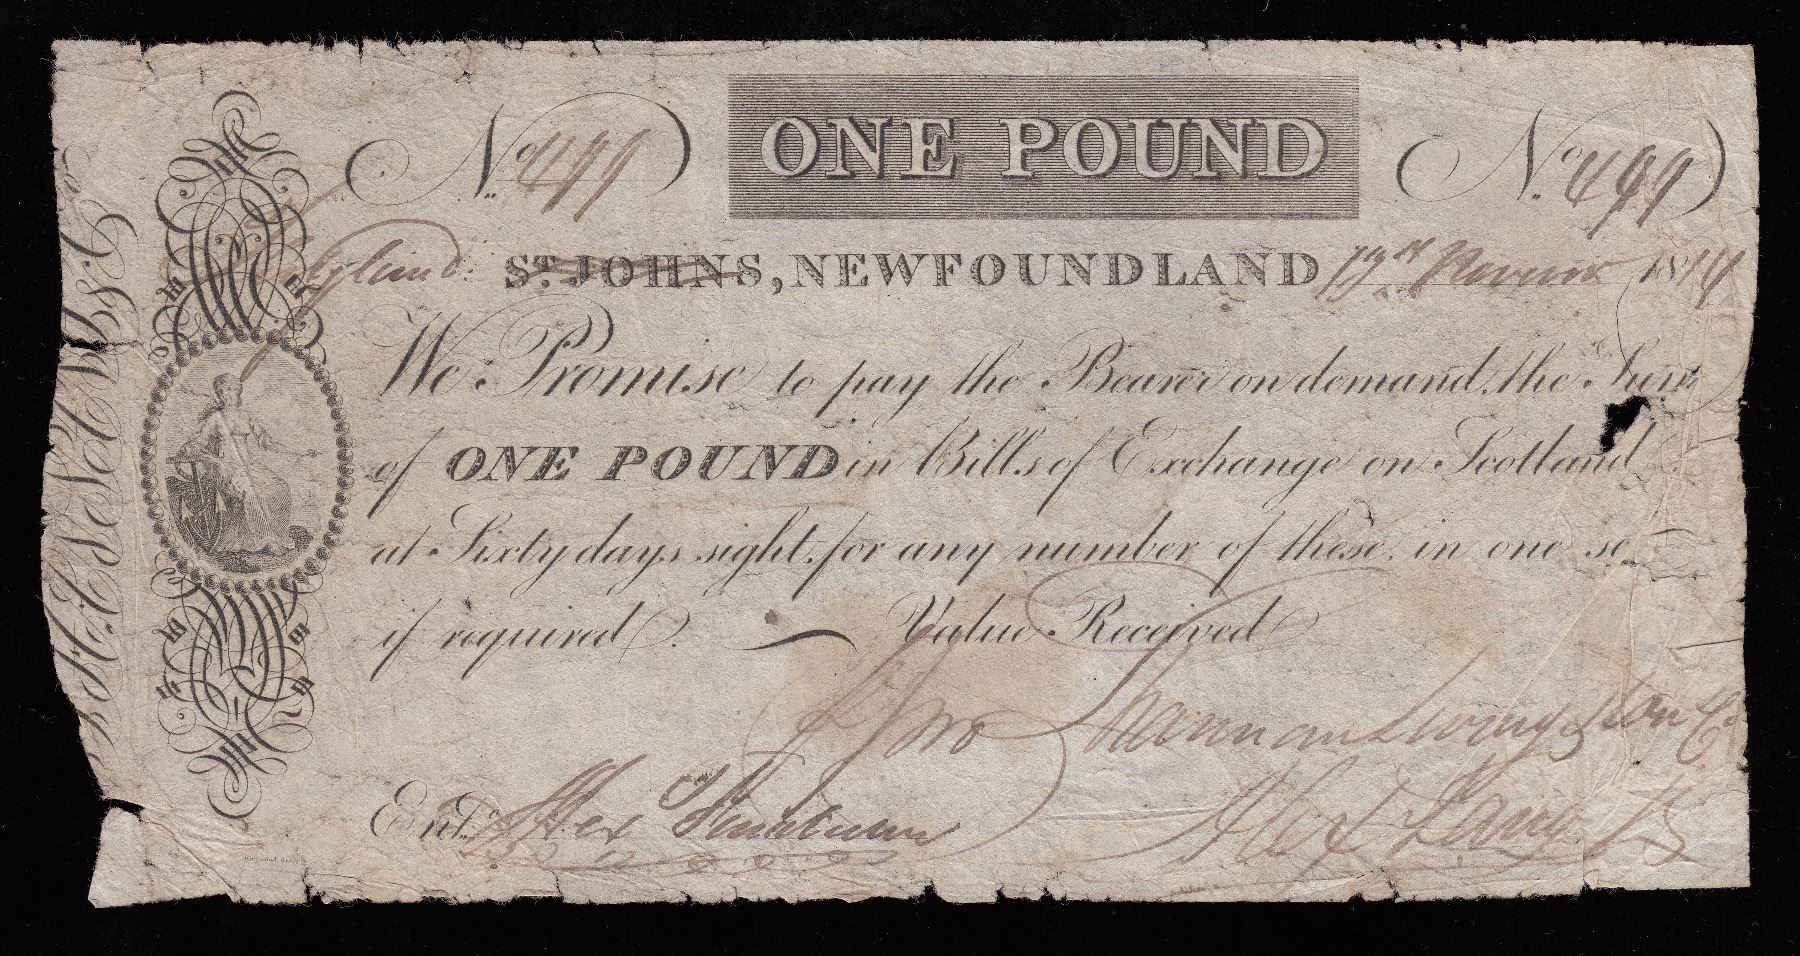 No. 499
ONE POUND
No. 499
ST. JOHNS, NEWFOUNDLAND 1814
We Promise to pay the Bearer on demand, the Sum
of ONE POUND in Bills of Exchange on Scotland
at Sixty days sight, for any number of these, in one se
if required. Value Received
Pro Hannan Livingston & Co
Entd. Alex
Alex Lang Jr